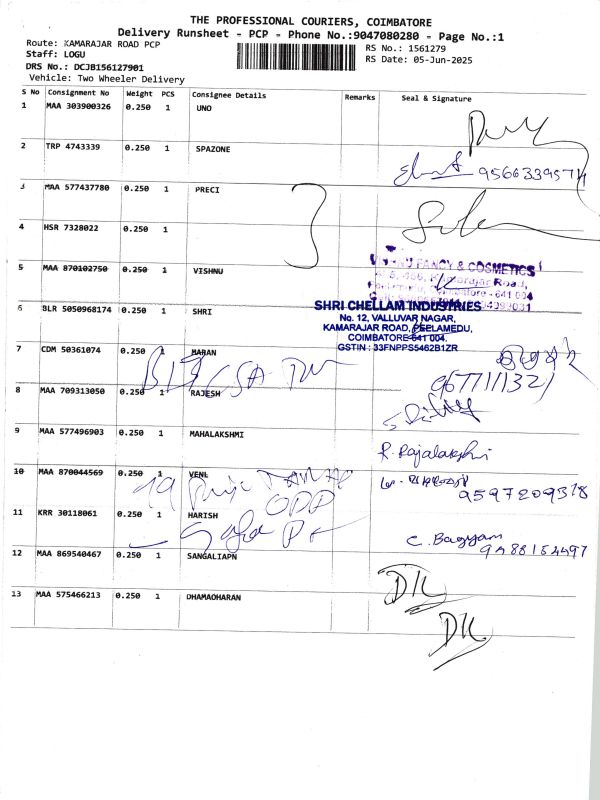 THE PROFESSIONAL COURIERS, COIMBATORE
Delivery Runsheet - PCP - Phone No.:9047080280 - Page No.:1
Route: KAMARAJAR ROAD PCP
Staff: LOGU
DRS No.: DCJB156127901
Vehicle: Two Wheeler Delivery
RS No.: 1561279
RS Date: 05-Jun-2025
S No Consignment No Weight PCS Consignee Details Remarks Seal & Signature
1 MAA 303900326 0.250 1 UNO
2 TRP 4743339 0.250 1 SPAZONE
9566339574
3 MAA 577437780 0.250 1 PRECI
4 HSR 7328022 0.250 1
5 MAA 870102750 0.250 1 VISHNU
FANCY & COSMETICS
Road,
- 641 004
6 BLR 5050968174 0.250 1 SHRI
SHRI CHELLAM INDUSTRIES
No. 12, VALLUVAR NAGAR,
KAMARAJAR ROAD, PEELAMEDU,
COIMBATORE-641 004.
GSTIN : 33FNPPS5462B1ZR
7 CDM 50361074 0.250 1 MARAN
9677111321
8 MAA 709313050 0.250 1 RAJESH
9 MAA 577496903 0.250 1 MAHALAKSHMI
R. Rajalakshmi
10 MAA 870044569 0.250 1 VENL
9597209318
11 KRR 30118061 0.250 1 HARISH
OPP
C. Bagyam
9488154497
12 MAA 869540467 0.250 1 SANGALIAPN
DK
13 MAA 575466213 0.250 1 DHAMAOHARAN
DK